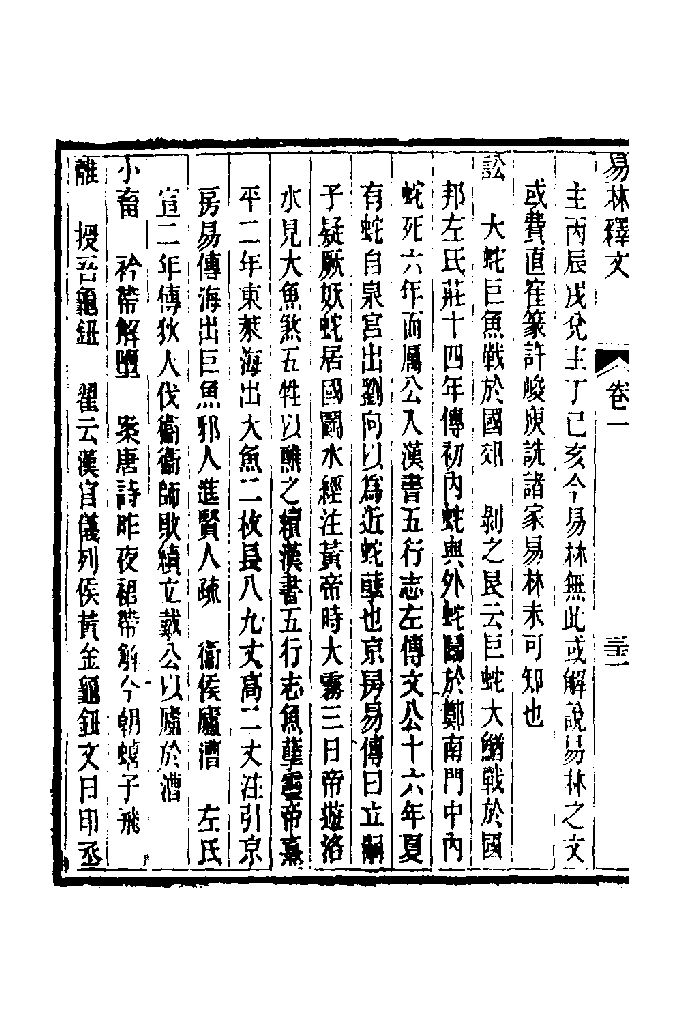 易林釋文 卷一 三十二
主丙辰戌兌主丁巳亥今易林無此或解說易林之文
或費直崔篆許峻庾詵諸家易林未可知也
訟 大蛇巨魚戰於國郊 剝之艮云巨蛇大鰌戰於國
邦左氏莊十四年傳初內蛇與外蛇鬬於鄭南門中內
蛇死六年而厲公入漢書五行志左傳文公十六年夏
有蛇自泉宮出劉向以為近蛇孽也京房易傳曰立嗣
子疑厥妖蛇居國鬬水經注黃帝時大霧三日帝遊洛
水見大魚煞五牲以醮之續漢書五行志魚孽靈帝熹
平二年東萊海出大魚二枚長八九丈高二丈注引京
房易傳海出巨魚邪人進賢人疏 衞侯廬漕 左氏
宣二年傳狄人伐衞衞師敗績立戴公以廬於漕
小畜 衿帶解墮 案唐詩昨夜裙帶解今朝蟢子飛
離 授吾龜鈕 翟云漢官儀列侯黃金龜鈕文曰印丞